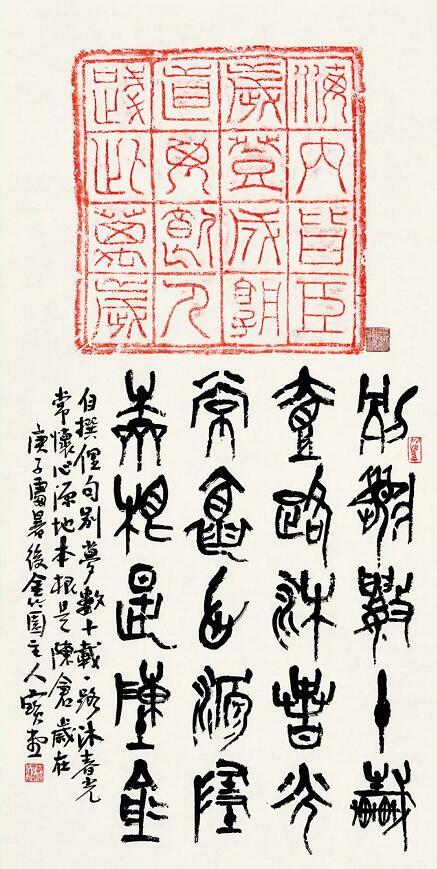 海内皆臣
歲登成孰
道毋飢人
踐此萬歲
别夢數十載
壹路沐春光
常懷心源地
本根是陳倉
自撰俚句别夢數十載一路沐春光
常懷心源地本根是陳倉歲在
庚子處暑後園主人